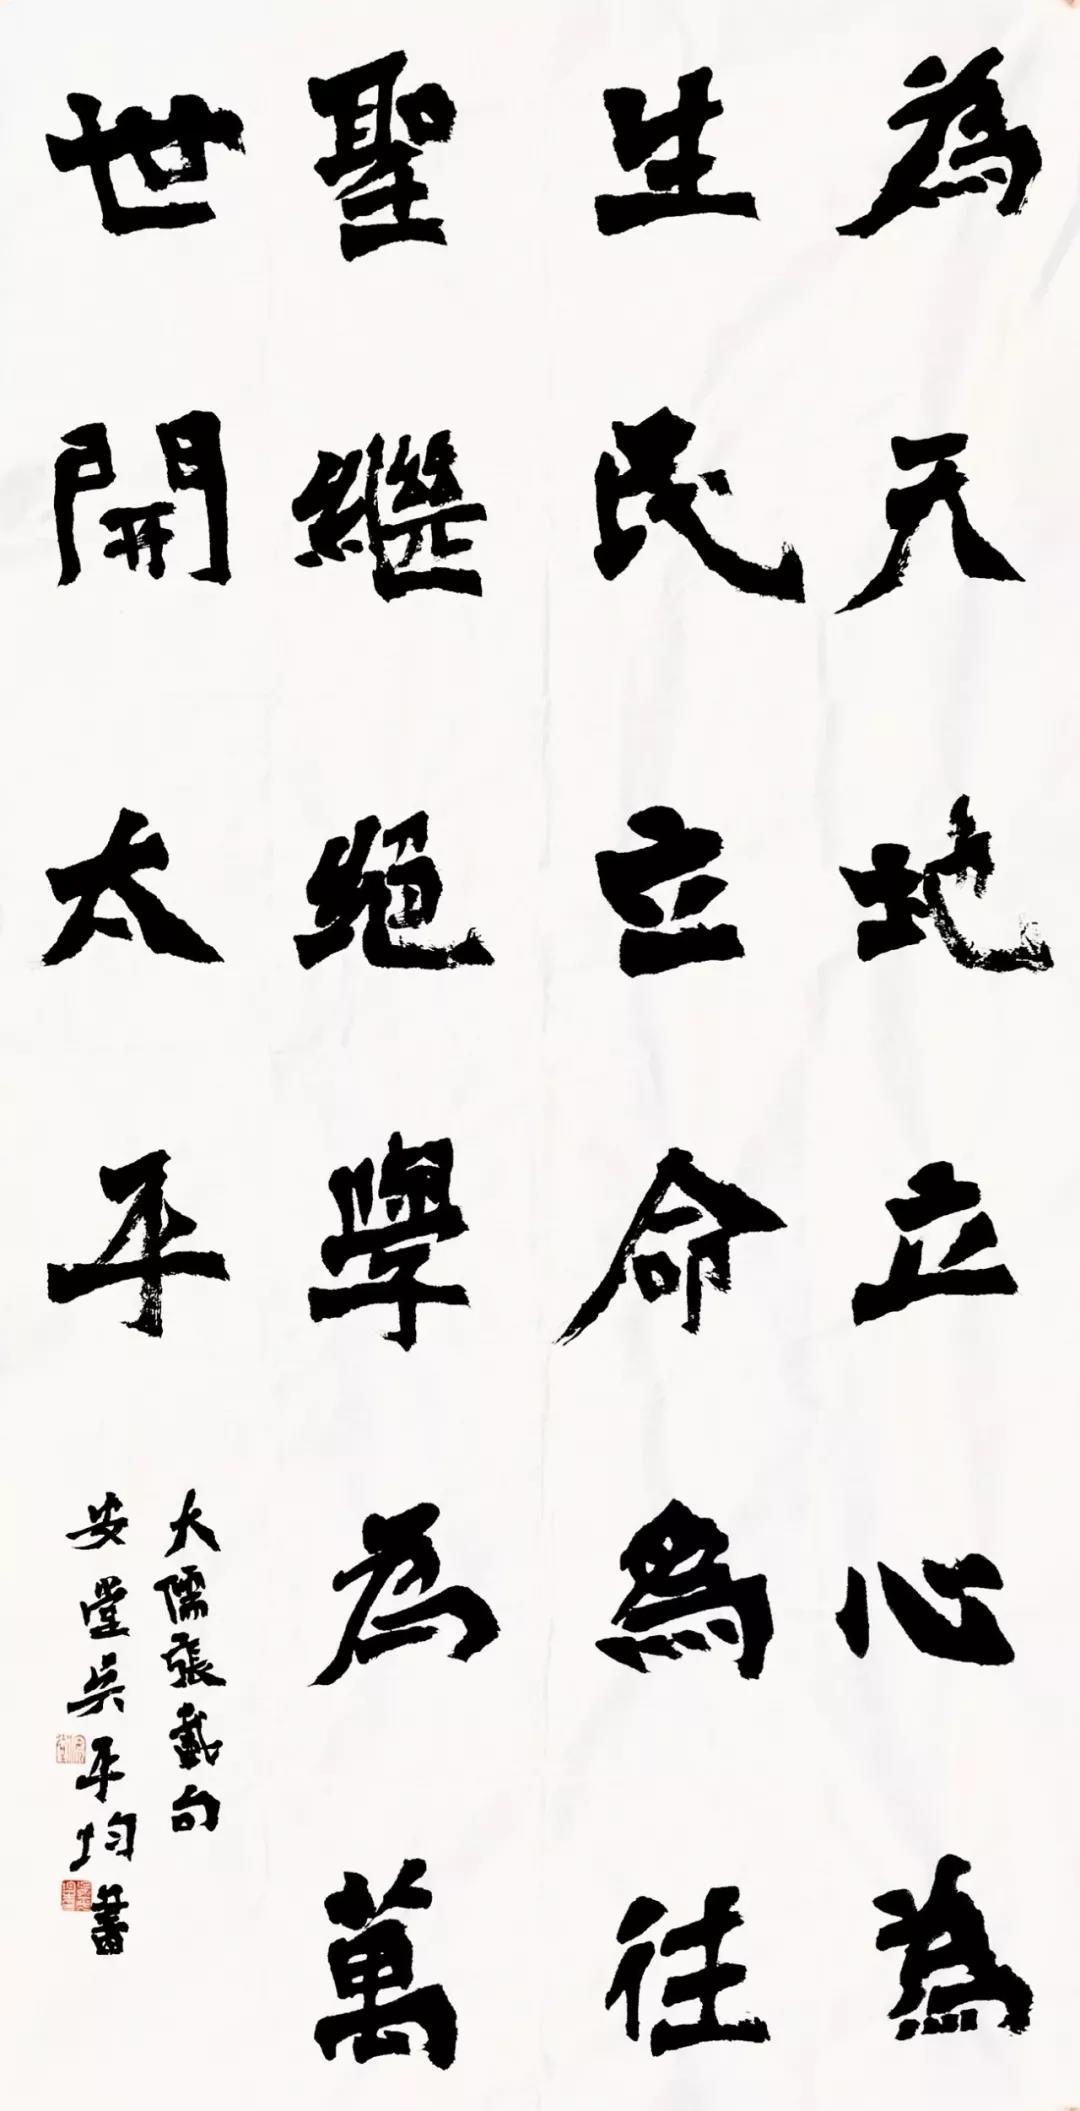 為天地立心為
生民立命為往
聖繼絕學為萬
世開太平
大儒張載句
安堂吳平均書